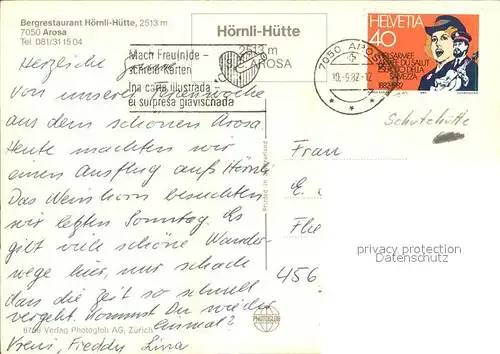 Bergrestaurant Hörnli-Hütte, 2513 m
7050 Arosa
Tel. 081/31 15 04
Hörnli-Hütte
2513 m
AROSA
Mach Freu(n)de -
schreib Karten
Ina carta illustrada -
ei surpresa gravischada
7050 AROSA
10.-9.82-12
HELVETIA
40
HEILSARMEE
ARMÉE DU SALUT
ESERCITO DELLA
SALVEZZA
1882-1982
Schutzhütte
Herzliche Grüsse
von unserer Ferienwoche
aus dem schönen Arosa.
Heute machten wir
einen Ausflug aufs Hörnli.
Das Weisshorn besuchten
wir letzten Sonntag. Es
gibt viele schöne Wander-
wege hier, nur schade
dass die Zeit so schnell
vergeht. Kommst Du wieder
einmal?
Vreni, Freddy Lina
Frau
E.
Flie
456
Printed in Switzerland
PHOTOGLOB
Verlag Photoglob AG, Zürich
privacy protection
www.AKPOOL.de